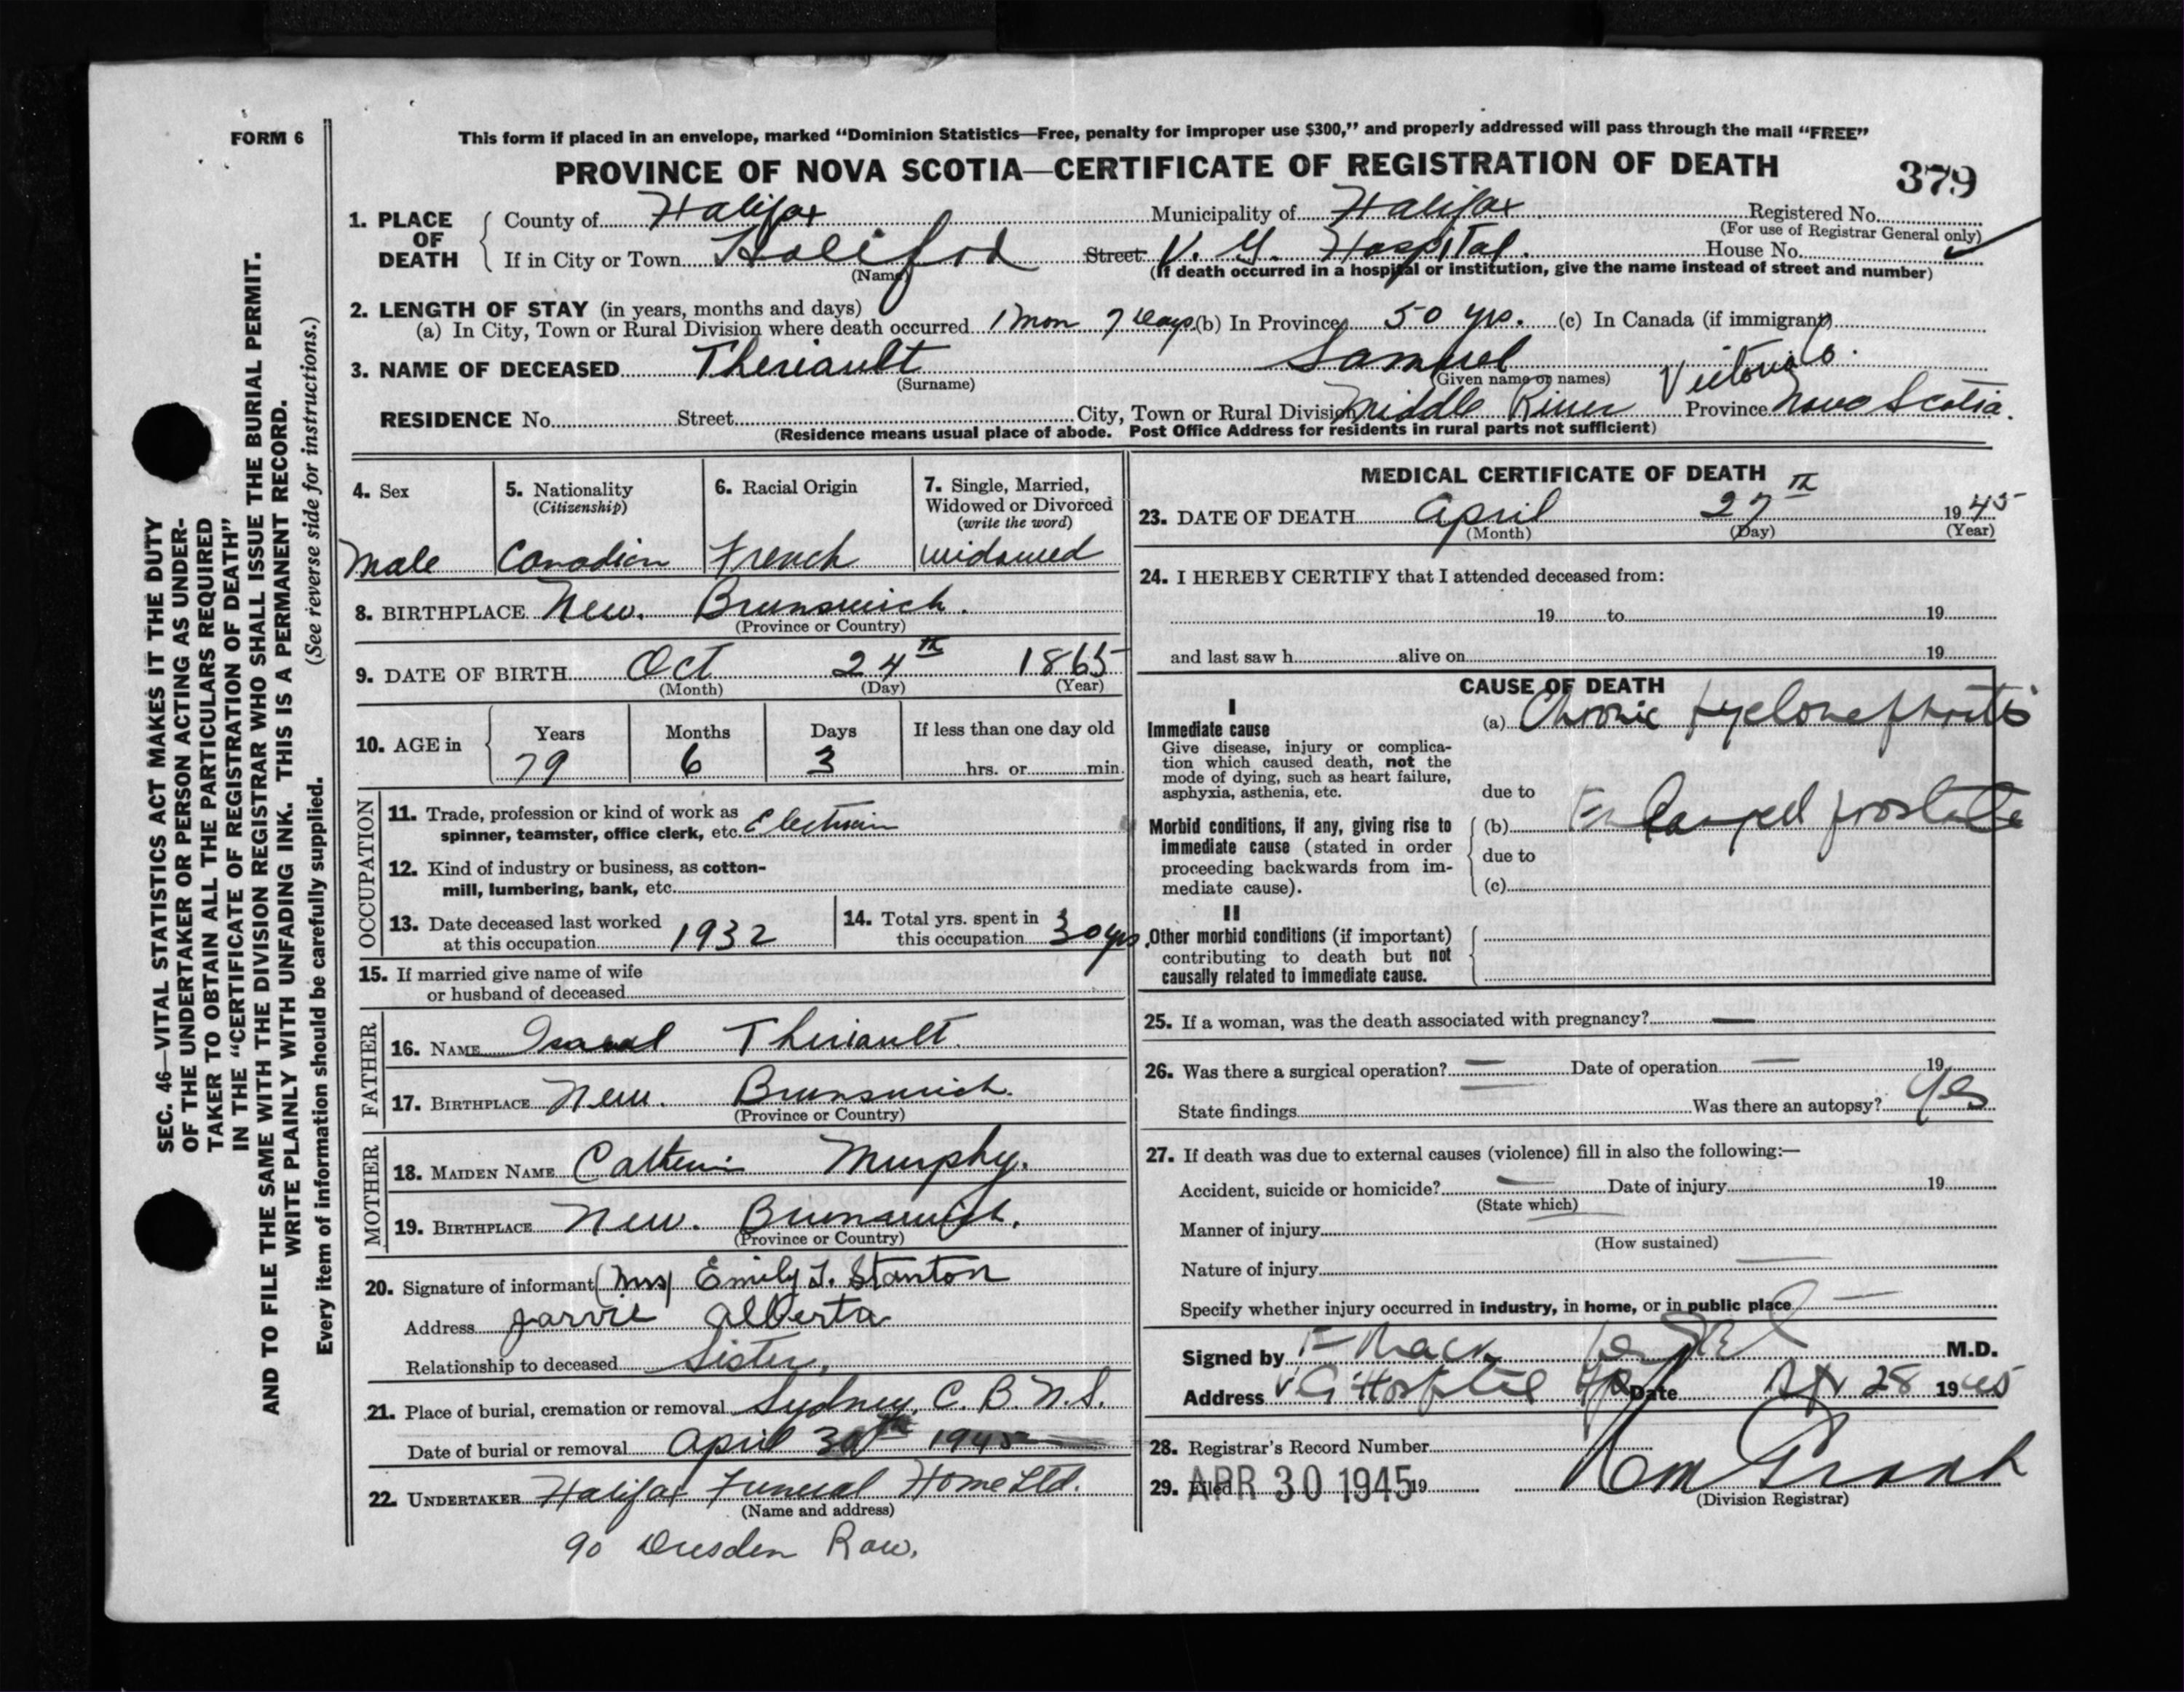 FORM 6
This form if placed in an envelope, marked "Dominion Statistics—Free, penalty for improper use $300," and properly addressed will pass through the mail "FREE"
PROVINCE OF NOVA SCOTIA—CERTIFICATE OF REGISTRATION OF DEATH
379
1. PLACE OF DEATH
County of Halifax Municipality of Halifax Registered No.
(For use of Registrar General only)
If in City or Town Halifax Street V. G. Hospital. House No.
(Name) (If death occurred in a hospital or institution, give the name instead of street and number)
2. LENGTH OF STAY (in years, months and days)
(a) In City, Town or Rural Division where death occurred 1 Mon 7 days (b) In Province 50 yrs. (c) In Canada (if immigrant)
3. NAME OF DECEASED Theriault Samuel
(Surname) (Given name or names)
Victoria Co.
RESIDENCE No. Street City, Town or Rural Division Middle River Province Nova Scotia.
(Residence means usual place of abode. Post Office Address for residents in rural parts not sufficient)
4. Sex
Male
5. Nationality
(Citizenship)
Canadian
6. Racial Origin
French
7. Single, Married,
Widowed or Divorced
(write the word)
Widowed
8. BIRTHPLACE New. Brunswick.
(Province or Country)
9. DATE OF BIRTH Oct 24th 1865
(Month) (Day) (Year)
10. AGE in
Years Months Days If less than one day old
79 6 3 hrs. or min.
OCCUPATION
11. Trade, profession or kind of work as
spinner, teamster, office clerk, etc.
12. Kind of industry or business, as cotton-
mill, lumbering, bank, etc.
13. Date deceased last worked
at this occupation 1932
14. Total yrs. spent in
this occupation 30 yrs
15. If married give name of wife
or husband of deceased
FATHER
16. NAME Theriault.
17. BIRTHPLACE New. Brunswick.
(Province or Country)
MOTHER
18. MAIDEN NAME Murphy.
19. BIRTHPLACE New. Brunswick.
(Province or Country)
20. Signature of informant (Mrs) Emily T. Stanton
Address Jarvie Alberta
Relationship to deceased Sister,
21. Place of burial, cremation or removal Sydney, C. B. N.S.
Date of burial or removal April 30th 1945
22. UNDERTAKER Halifax Funeral Home Ltd.
(Name and address)
90 Dresden Row.
MEDICAL CERTIFICATE OF DEATH
23. DATE OF DEATH April 27th 1945
(Month) (Day) (Year)
24. I HEREBY CERTIFY that I attended deceased from:
19 to 19
and last saw h alive on 19
CAUSE OF DEATH
I
Immediate cause
Give disease, injury or complica-
tion which caused death, not the
mode of dying, such as heart failure,
asphyxia, asthenia, etc.
(a) Chronic
due to
Morbid conditions, if any, giving rise to
immediate cause (stated in order
proceeding backwards from im-
mediate cause).
(b) Enlarged prostate
due to
(c)
II
Other morbid conditions (if important)
contributing to death but not
causally related to immediate cause.
25. If a woman, was the death associated with pregnancy? —
26. Was there a surgical operation? — Date of operation — 19
State findings Was there an autopsy? Yes
27. If death was due to external causes (violence) fill in also the following:—
Accident, suicide or homicide? — Date of injury 19
(State which)
Manner of injury
(How sustained)
Nature of injury —
Specify whether injury occurred in industry, in home, or in public place —
Signed by M.D.
Address V.G. Hospital Date 28 1945
28. Registrar's Record Number
29. Filed APR 30 1945 19
(Division Registrar)
SEC. 46—VITAL STATISTICS ACT MAKES IT THE DUTY
OF THE UNDERTAKER OR PERSON ACTING AS UNDER-
TAKER TO OBTAIN ALL THE PARTICULARS REQUIRED
IN THE "CERTIFICATE OF REGISTRATION OF DEATH"
AND TO FILE THE SAME WITH THE DIVISION REGISTRAR WHO SHALL ISSUE THE BURIAL PERMIT.
WRITE PLAINLY WITH UNFADING INK. THIS IS A PERMANENT RECORD.
Every item of information should be carefully supplied. (See reverse side for instructions.)